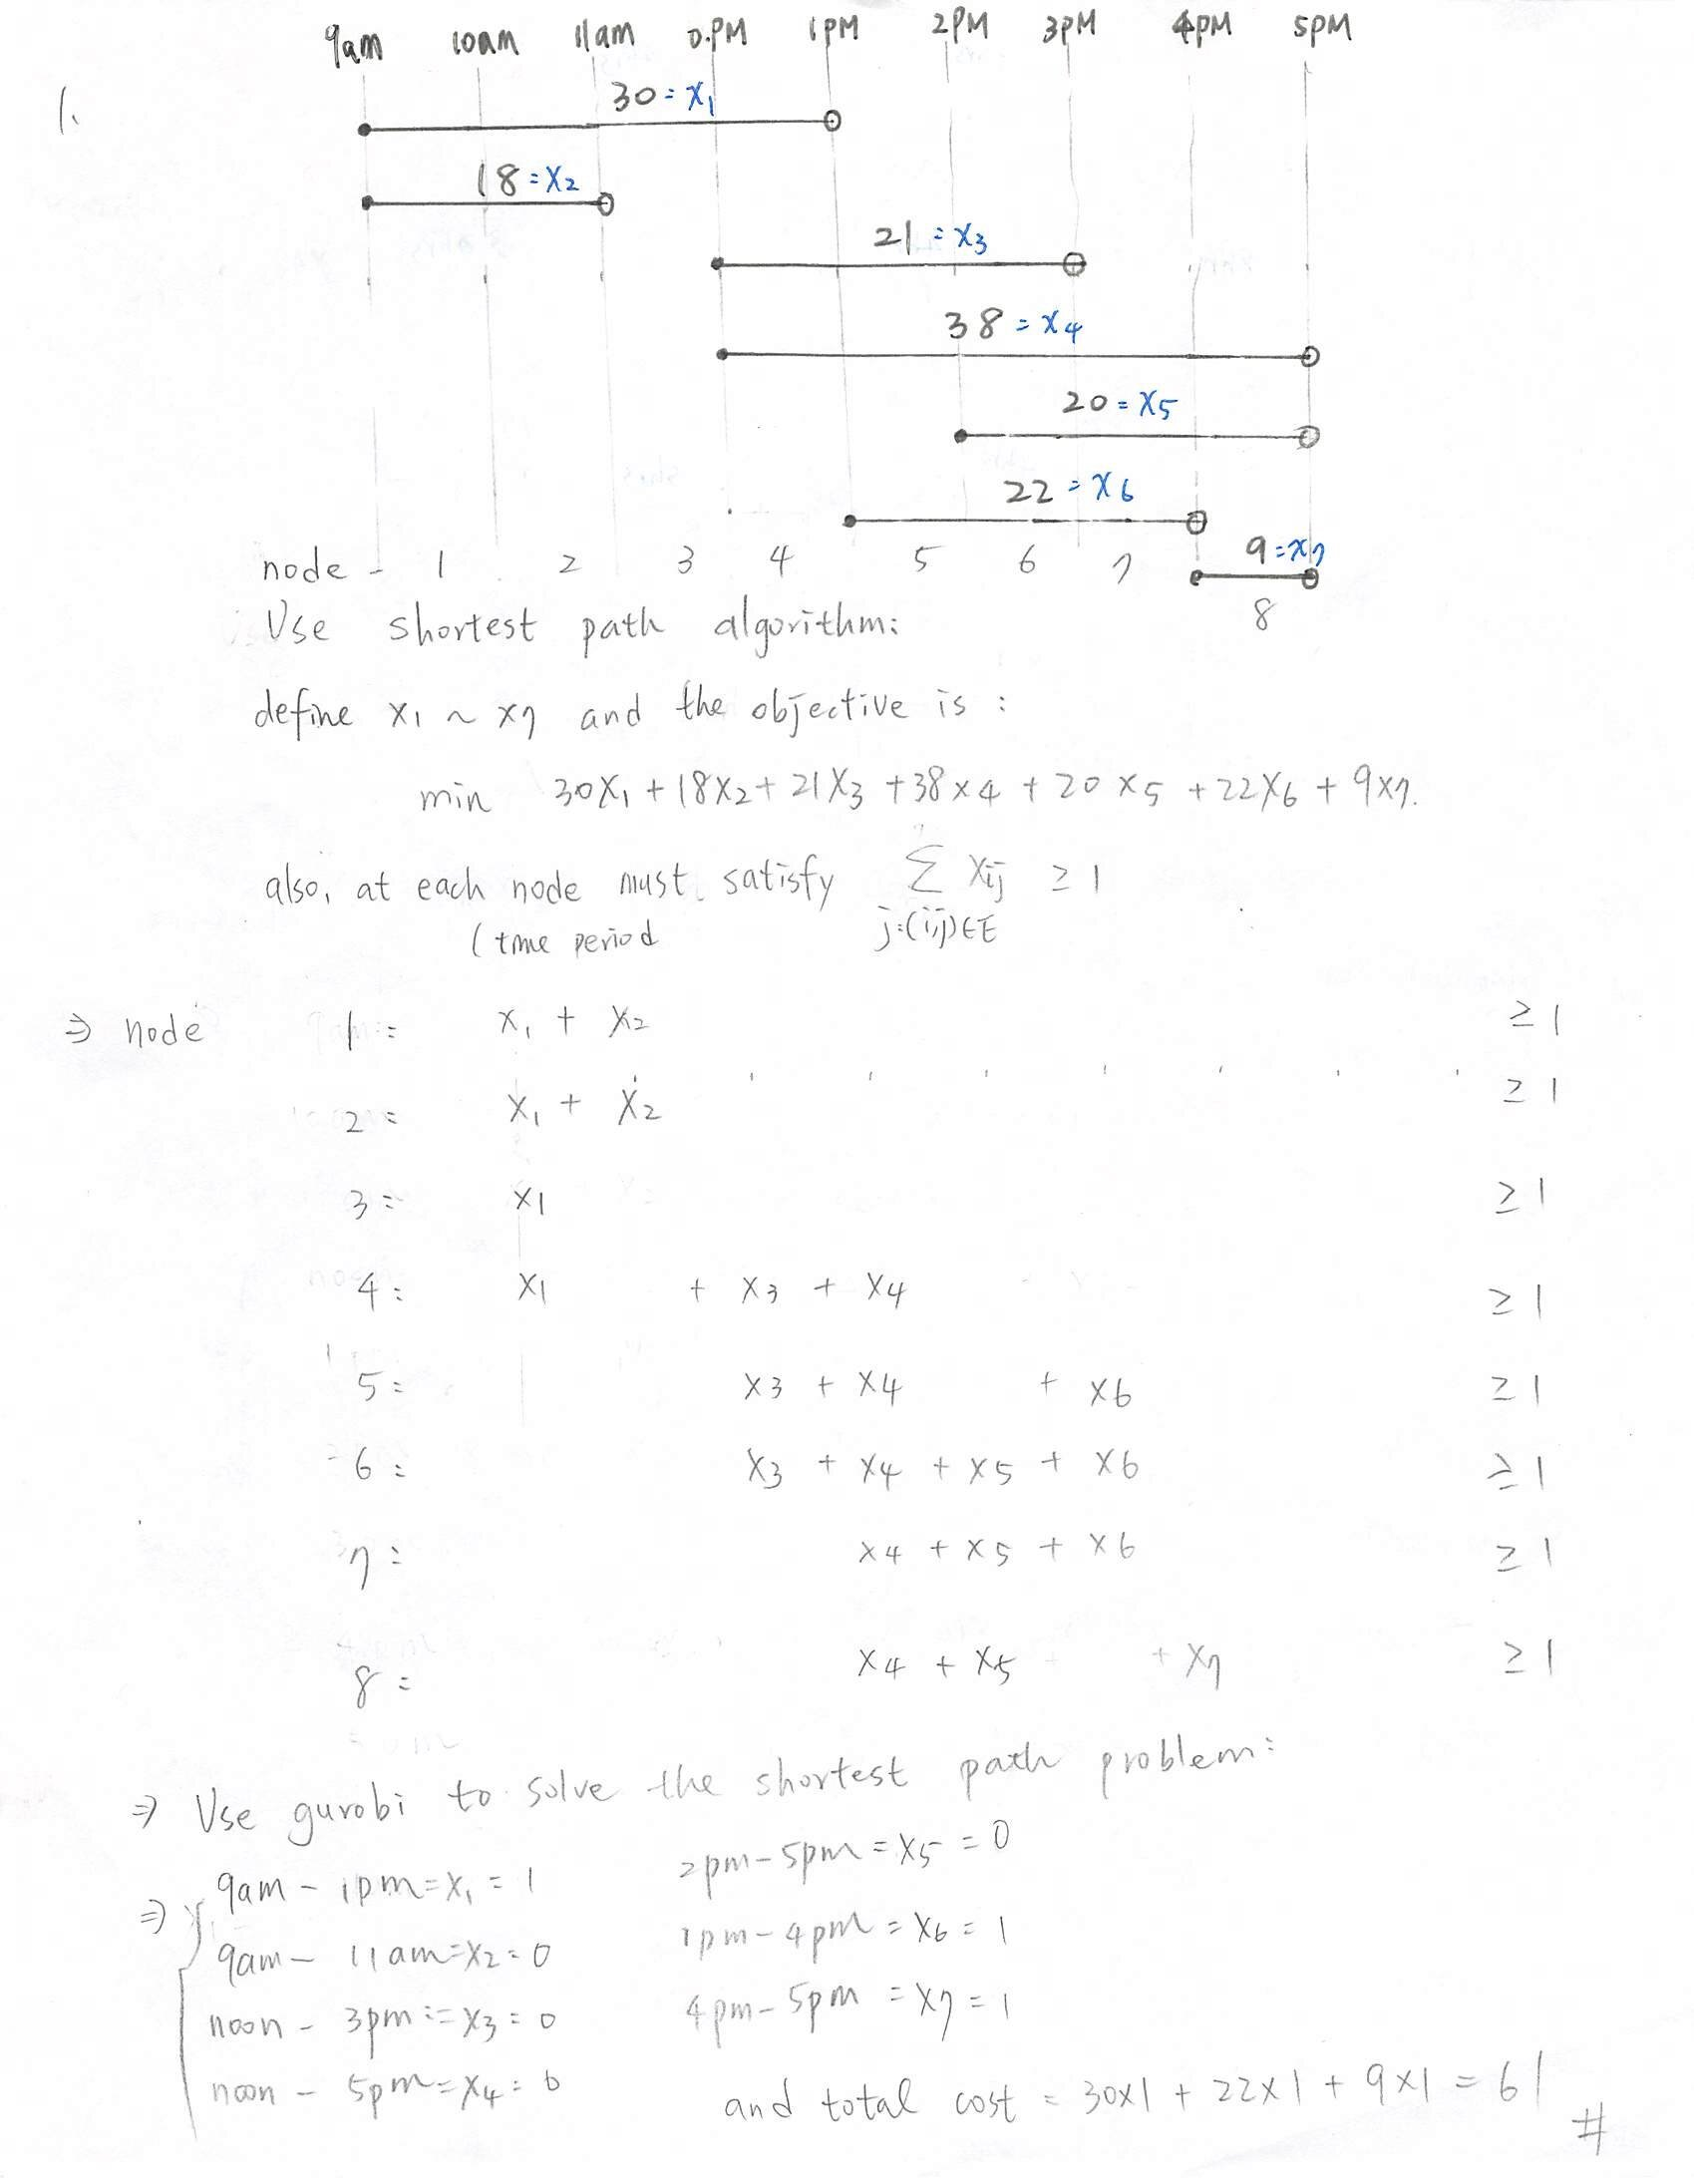 9am 10am 11am 0.PM 1PM 2PM 3PM 4PM 5PM
1.
30 = x1
18 = x2
21 = x3
38 = x4
20 = x5
22 = x6
9 = x7
node - 1 2 3 4 5 6 7 8
Use shortest path algorithm:
define x1 ~ x7 and the objective is :
min 30x1 + 18x2 + 21x3 + 38x4 + 20x5 + 22x6 + 9x7.
also, at each node must satisfy Σ xij ≥ 1
(time period j:(i,j)∈E
⇒ node 1 : x1 + x2 ≥ 1
2 : x1 + x2 ≥ 1
3 : x1 ≥ 1
4 : x1 + x3 + x4 ≥ 1
5 : x3 + x4 + x6 ≥ 1
6 : x3 + x4 + x5 + x6 ≥ 1
7 : x4 + x5 + x6 ≥ 1
8 : x4 + x5 + x7 ≥ 1
⇒ Use gurobi to solve the shortest path problem:
⇒ { 9am - 1pm = x1 = 1
9am - 11am = x2 = 0
noon - 3pm = x3 = 0
noon - 5pm = x4 = 0
2pm - 5pm = x5 = 0
1pm - 4pm = x6 = 1
4pm - 5pm = x7 = 1
and total cost = 30x1 + 22x1 + 9x1 = 61 #